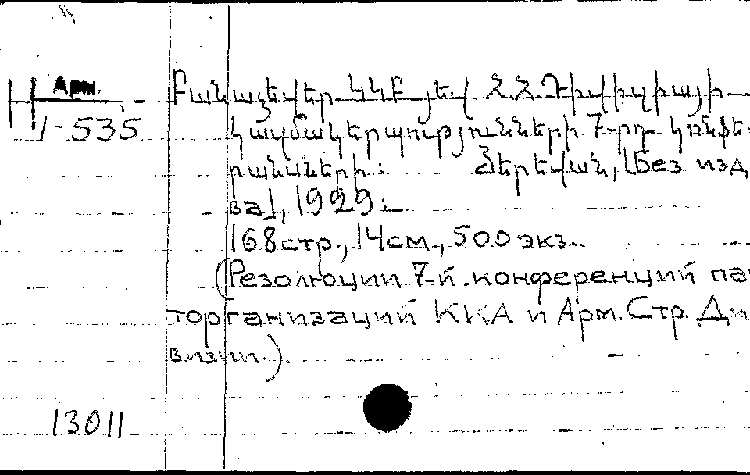 Арм.
1-535
Բանաձևեր ԿԿԲ յեվ Հ.Հ.Դիվիզիայի
կազմակերպությունների 7-րդ կոնֆե-
րանսների: Յերեվան, [Без изд
ва], 1929:
168 стр., 14 см., 500 экз.
(Резолюции 7-й конференций па
торганизаций ККА и Арм. Стр. Ди
визии.)
13011